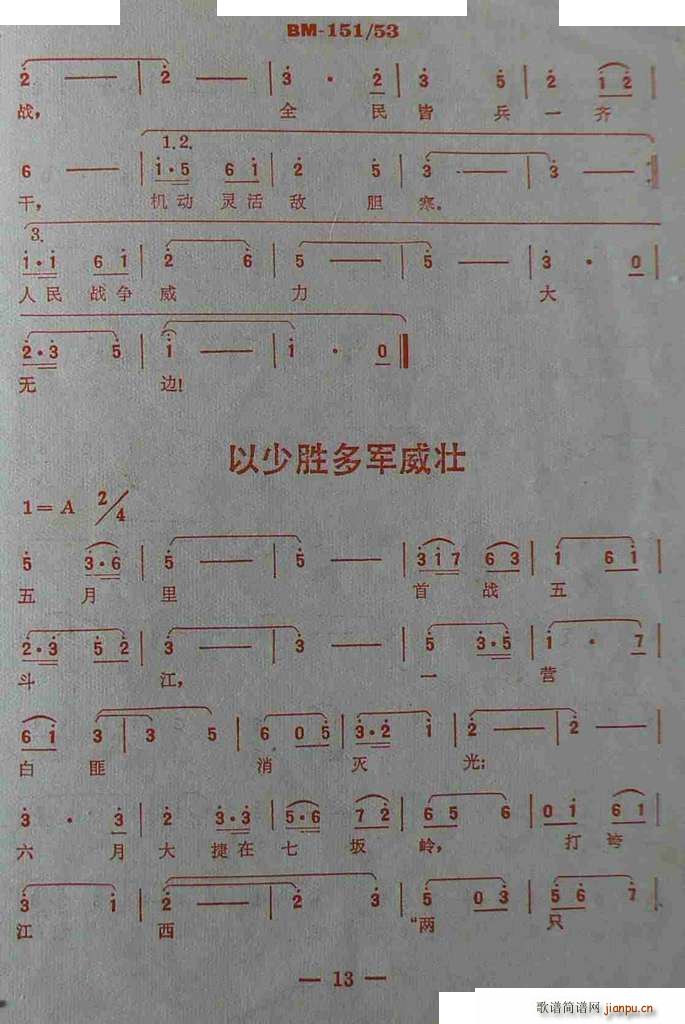 BM-151/53
2 — 2 — 3 · 2 3 5 2 1 2
战, 全 民 皆 兵 一 齐
1.2.
6 — 1·5 6 1 2 5 3 — 3 —
干, 机动 灵活 敌 胆 寒。
3.
1·1 6 1 2 6 5 — 5 — 3 · 0
人民 战争 威 力 大
2·3 5 1 — 1 · 0
无 边!
以少胜多军威壮
1=A 2/4
5 3·6 5 — 5 — 3 1 7 6 3 1 6 1
五 月 里 首 战 五
2·3 5 2 3 — 3 — 5 3·5 1 · 7
斗 江, 一 营
6 1 3 3 5 6 0 5 3·2 1 2 — 2 —
白 匪 消 灭 光;
3 · 3 2 3·3 5·6 7 2 6 5 6 0 1 6 1
六 月 大 捷在 七 坂 岭, 打 垮
3 1 2 — 2 3 5 0 3 5 6 7
江 西 “两 只
— 13 —
歌谱简谱网
jianpu.cn